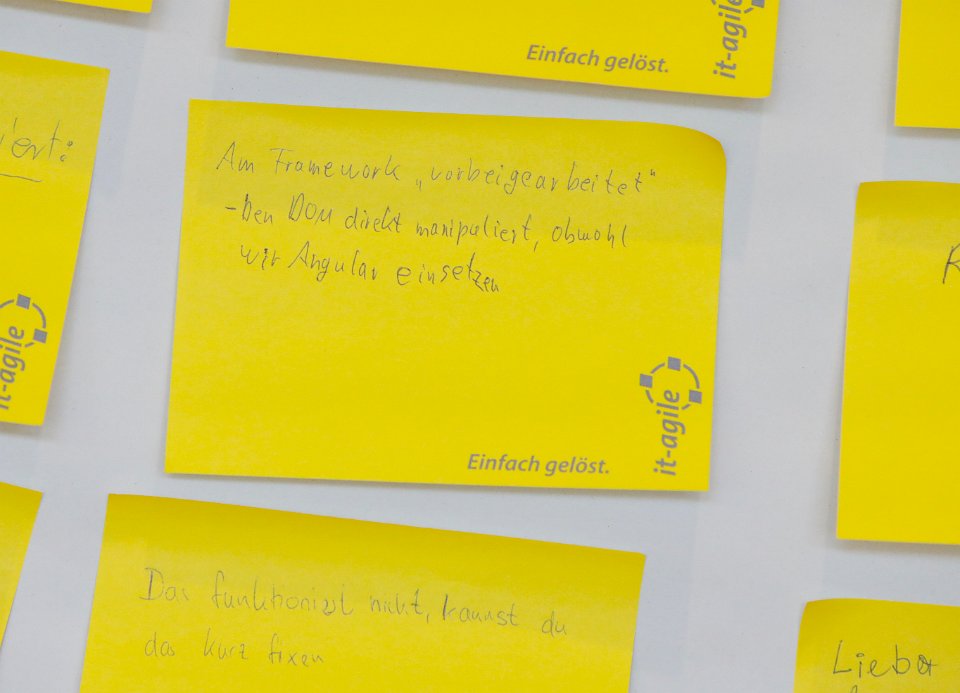 Einfach gelöst.
it-agile
iert:
it-agile
Am Framework „vorbeigearbeitet“
- Den DOM direkt manipuliert, obwohl
wir Angular einsetzen
Einfach gelöst.
it-agile
Das funktioniert nicht, kannst du
das kurz fixen